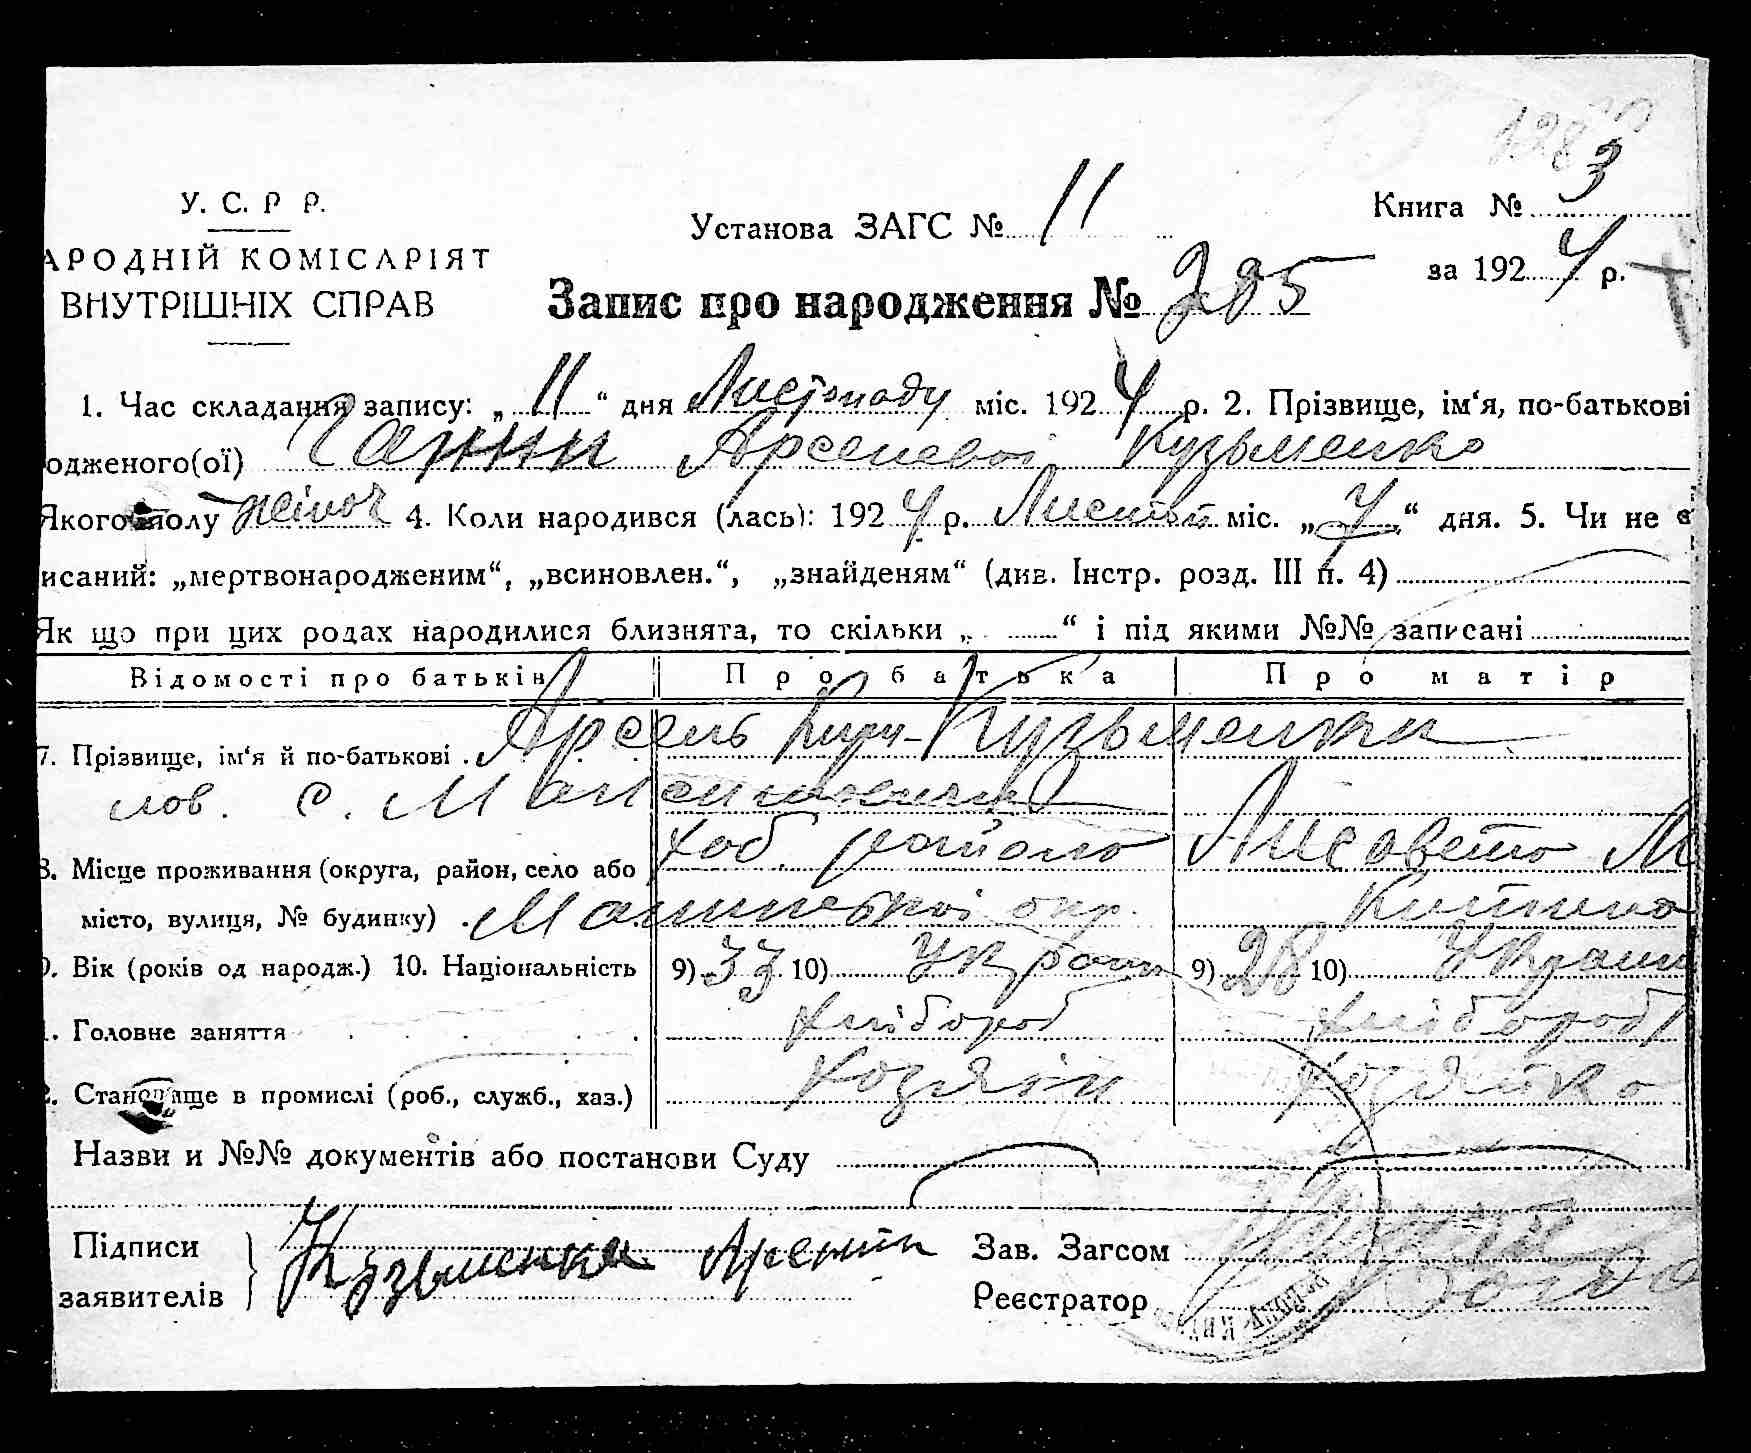 У. С. Р Р.
АРОДНІЙ КОМІСАРІЯТ
ВНУТРІШНІХ СПРАВ
Установа ЗАГС № 11
Книга № 3
за 1924 р.
Запис про народження № 285
1. Час складання запису: „11“ дня Листопаду міс. 1924 р. 2. Прізвище, ім‘я, по-батькові
одженого(ої) Ганни Арсеневої Кузьменко
Якого полу жіноч 4. Коли народився (лась): 1924 р. Листоп міс. „7“ дня. 5. Чи не є
исаний: „мертвонародженим“, „всиновлен.“, „знайденям“ (див. Інстр. розд. III п. 4)
Як що при цих родах народилися близнята, то скільки „ “ і під якими №№ записані
Відомості про батьків Про батька Про матір
7. Прізвище, ім‘я й по-батькові Арсень Кузьменки
лов. с.
8. Місце проживання (округа, район, село або Хаб. району Лисавета М
місто, вулиця, № будинку) окр.
9. Вік (років од народж.) 10. Національність 9) 33 10) Украін 9) 28 10) Украін
1. Головне заняття Хлібороб Хлібороб
2. Становище в промислі (роб., служб., хаз.) Хозяїн Хозяйка
Назви и №№ документів або постанови Суду
Підписи
заявителів
Кузьменко Арсентій
Зав. Загсом
Реєстратор